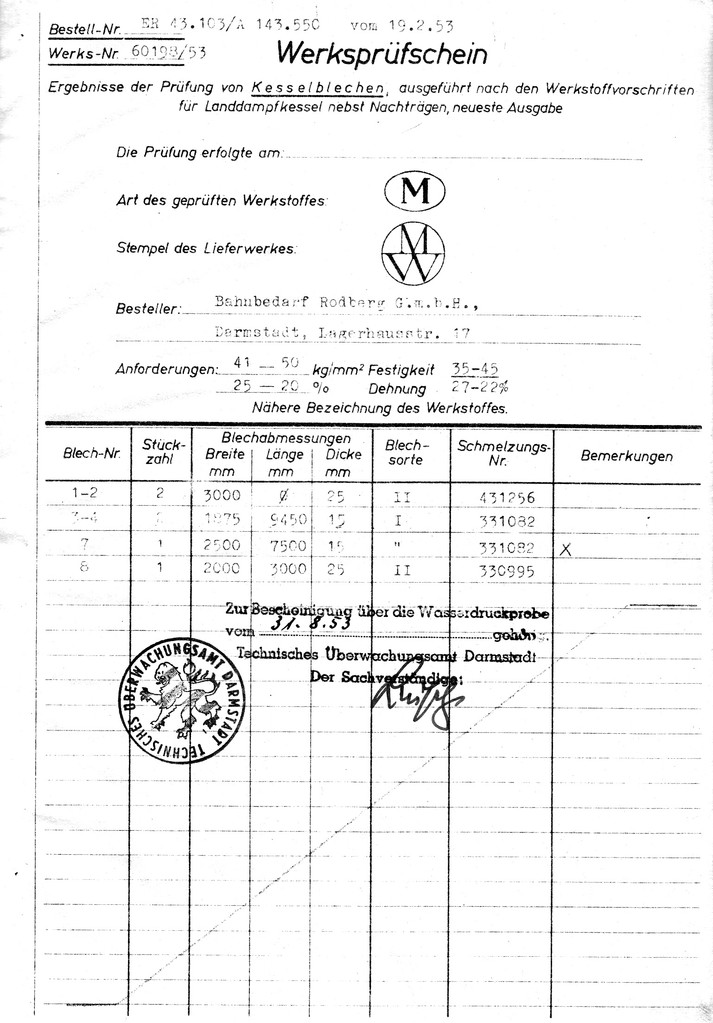 Bestell-Nr. ER 43.103/A 143.550 vom 19.2.53
Werks-Nr. 60198/53
Werksprüfschein
Ergebnisse der Prüfung von Kesselblechen, ausgeführt nach den Werkstoffvorschriften
für Landdampfkessel nebst Nachträgen, neueste Ausgabe
Die Prüfung erfolgte am:
Art des geprüften Werkstoffes: M
Stempel des Lieferwerkes: MW
Besteller: Bahnbedarf Rodberg G.m.b.H.,
Darmstadt, Lagerhausstr. 17
Anforderungen: 41 — 50 kg/mm² Festigkeit 35-45
25 — 20 % Dehnung 27-22%
Nähere Bezeichnung des Werkstoffes.
Blech-Nr. Stück-zahl Blechabmessungen Breite mm Länge mm Dicke mm Blech-sorte Schmelzungs-Nr. Bemerkungen
1-2 2 3000 ø 25 II 431256
3-4 1875 9450 15 I 331082
7 1 2500 7500 15 " 331082 X
8 1 2000 3000 25 II 330995
Zur Bescheinigung über die Wasserdruckprobe
vom 31.8.53 gehörig.
Technisches Überwachungsamt Darmstadt
Der Sachverständige:
TECHNISCHES ÜBERWACHUNGSAMT DARMSTADT